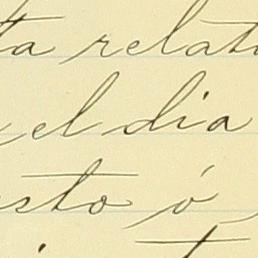 ta relat
el dia
sto ó